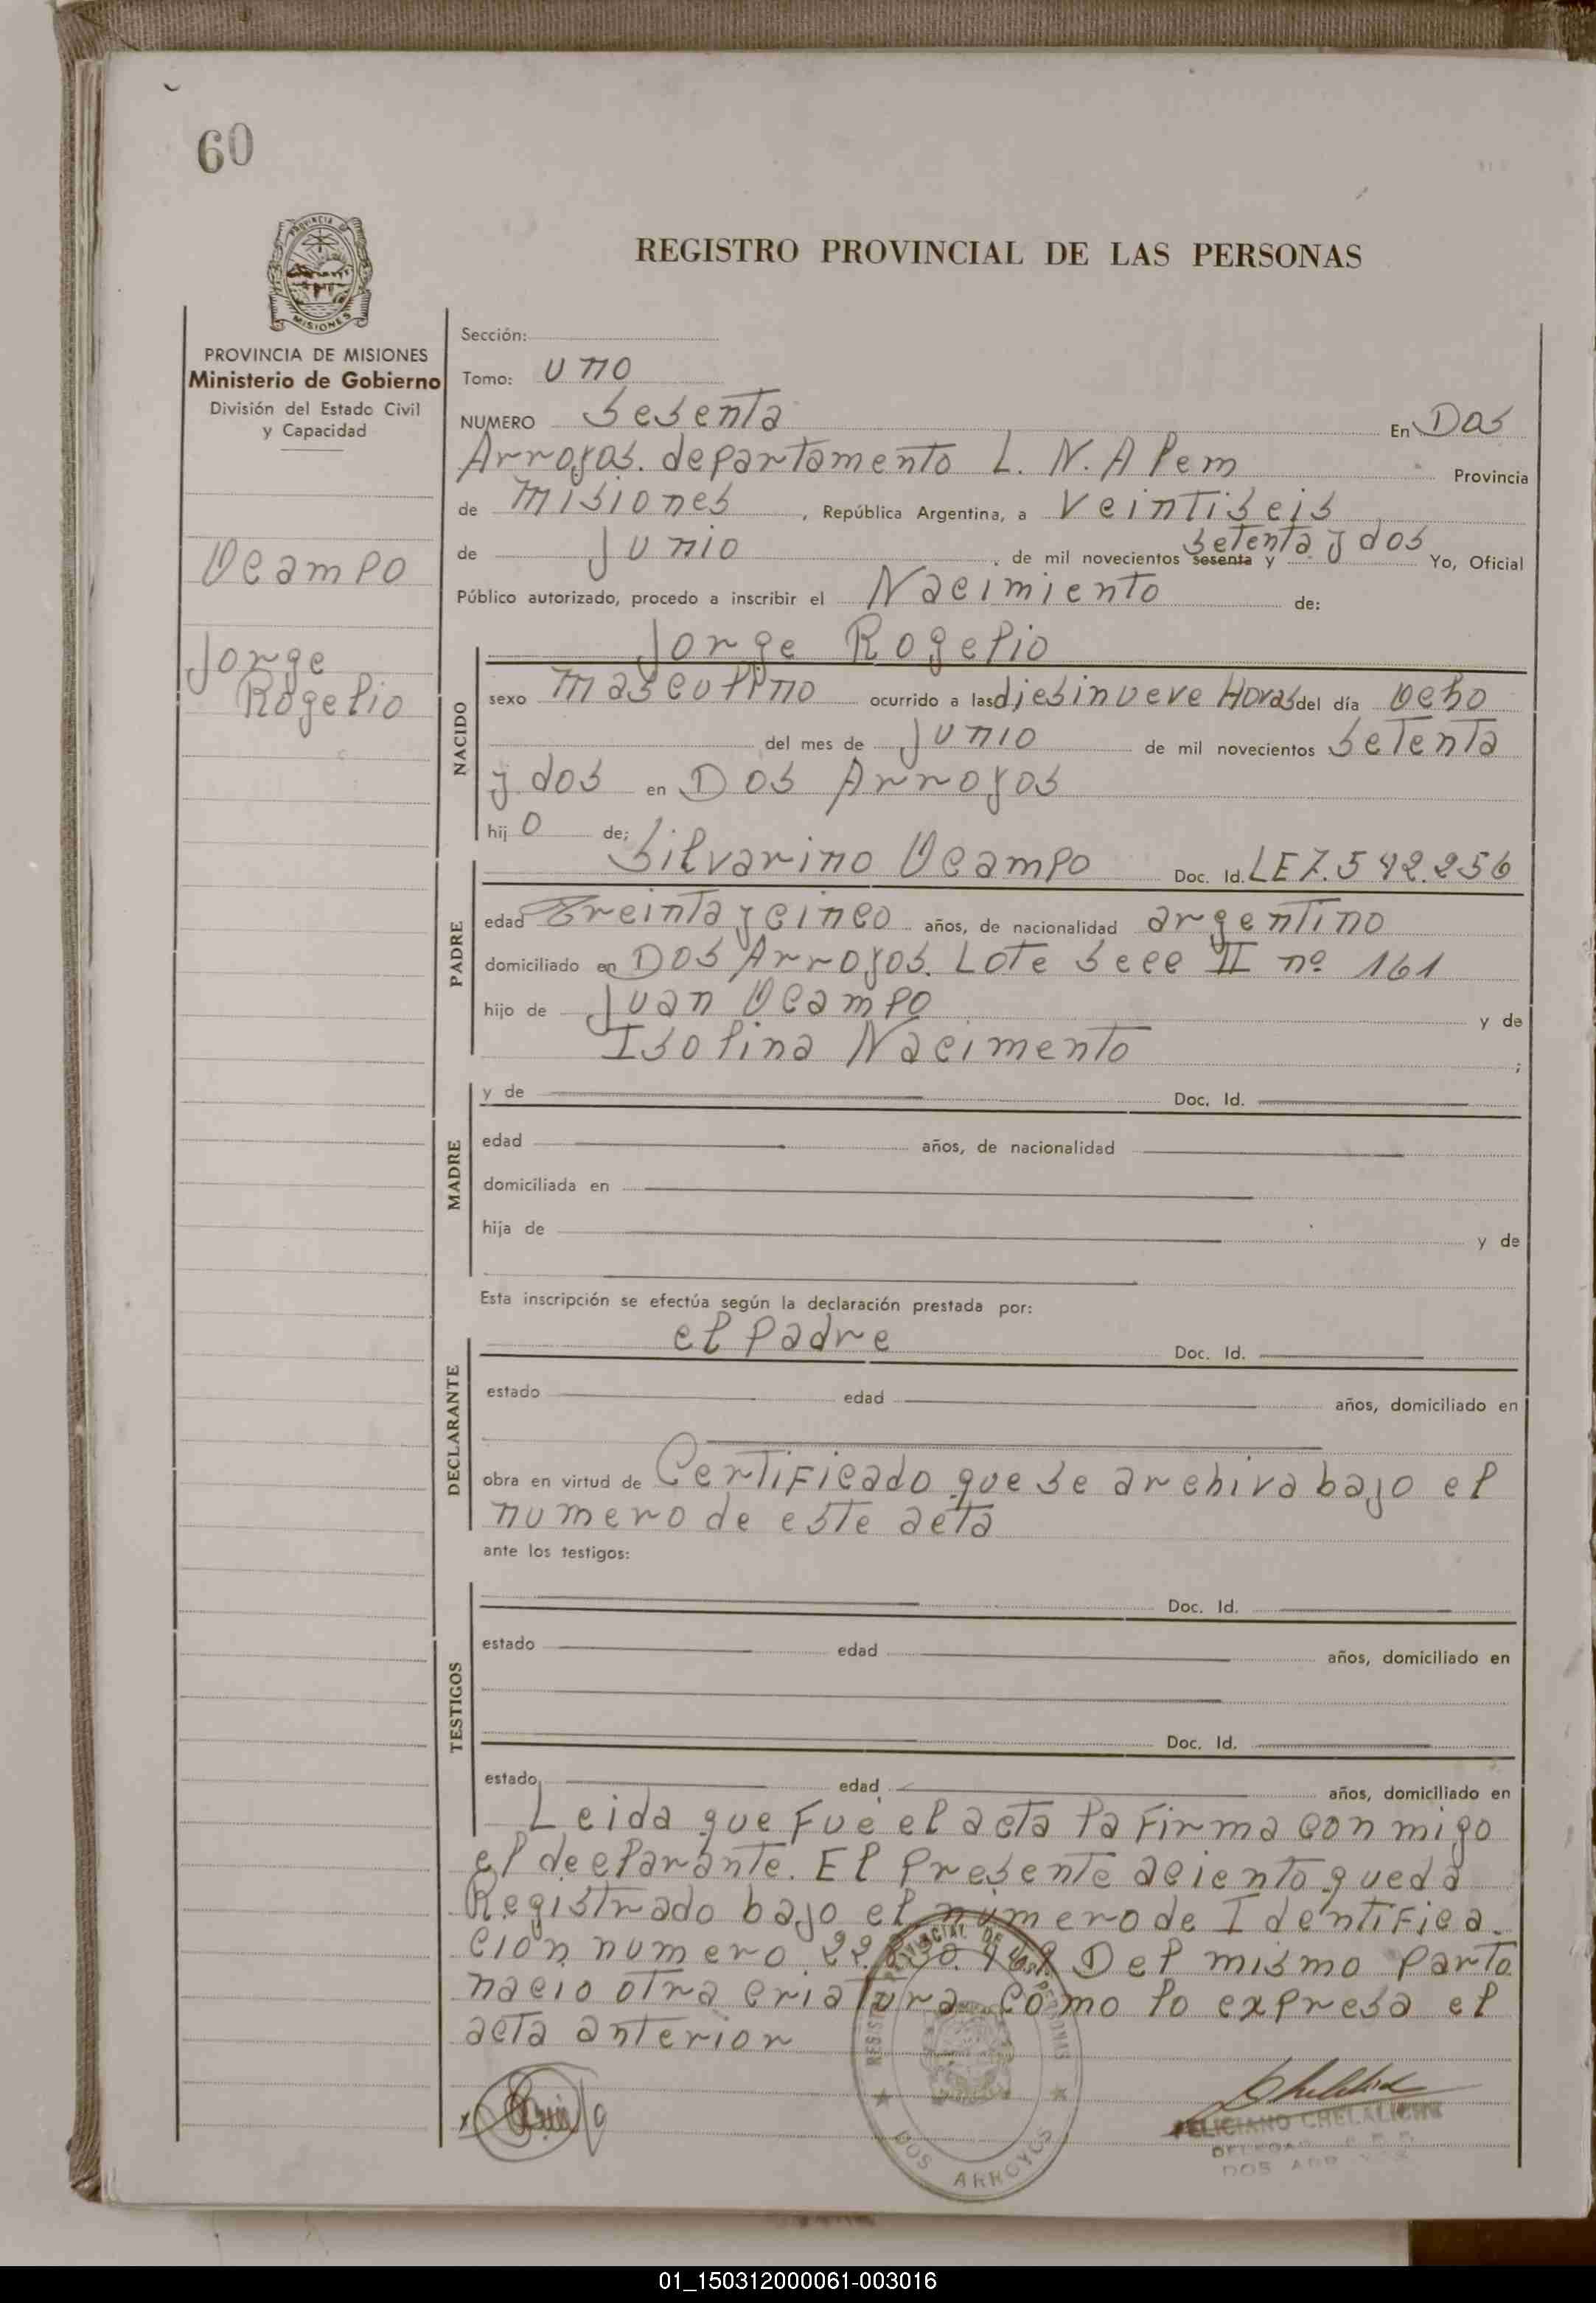 60
PROVINCIA
MISIONES
REGISTRO PROVINCIAL DE LAS PERSONAS
PROVINCIA DE MISIONES
Ministerio de Gobierno
División del Estado Civil
y Capacidad
Ocampo
Jorge
Rogelio
Sección:
Tomo: uno
NUMERO Sesenta En Dos
Arroyos. departamento L. N. Alem Provincia
de Misiones, República Argentina, a Veintiseis
de Junio, de mil novecientos sesenta y setenta y dos Yo, Oficial
Público autorizado, procedo a inscribir el Nacimiento de:
NACIDO
Jorge Rogelio
sexo masculino ocurrido a las diesinueve Horas del día ocho
del mes de Junio de mil novecientos Setenta
y dos en Dos Arroyos
hijo de;
PADRE
Silvarino Ocampo Doc. Id. LE 7.542.256
edad Treinta y cinco años, de nacionalidad argentino
domiciliado en Dos Arroyos. Lote Secc II nº 161
hijo de Juan Ocampo y de
Isolina Nacimento ;
MADRE
y de Doc. Id.
edad años, de nacionalidad
domiciliada en
hija de y de
Esta inscripción se efectúa según la declaración prestada por:
DECLARANTE
el Padre Doc. Id.
estado edad años, domiciliado en
obra en virtud de Certificado que se archiva bajo el
numero de este acta
ante los testigos:
TESTIGOS
Doc. Id.
estado edad años, domiciliado en
Doc. Id.
estado edad años, domiciliado en
Leida que fué el acta la firma con migo
el declarante. El Presente aciento queda
Registrado bajo el número de Identifica
cion numero Del mismo parto
nacio otra criatura como lo expresa el
acta anterior
REGISTRO PROVINCIAL DE LAS PERSONAS
DOS ARROYOS
FELICIANO
DOS
01_150312000061-003016